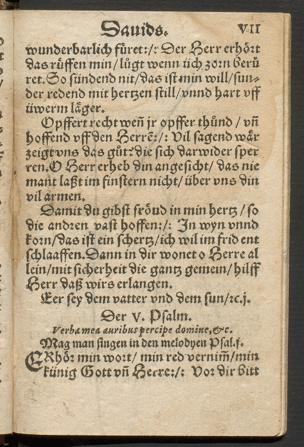 Dauids. VII
wunderbarlich füret:/: Der Herr erhört
das rüffen min/ lůgt wenn üch zorn berů
ret. So sündend nit/ das ist min will/ sun-
der redend mit hertzen still/ vnnd hart vff
üwerm läger.
Opffert recht weñ jr opffer thünd / vñ
hoffend vff den Herrẽ:/: Vil sagend wär
zeigt vns das gůt? die sich darwider sper
ren. O Herr erheb din angesicht/ das nie
mant laßt im finstern nicht/ über vns din
vil armen.
Damit du gibst fröud in min hertz / so
die andren vast hoffen:/: In wyn vnnd
korn/ das ist ein schertz/ ich wil im frid ent
schlaaffen. Dann in dir wonet o Herre al
lein/ mit sicherheit die gantz gemein/ hilff
Herr daß wirs erlangen.
Eer sey dem vatter vnd dem sun/ rc. j.
Der V. Psalm.
Verba mea auribus percipe domine, &c.
Mag man singen in den melodyen Psal. j.
ERhör min wort/ min red vernim̃/ min
künig Gott vñ Herre:/: Vor dir bitt